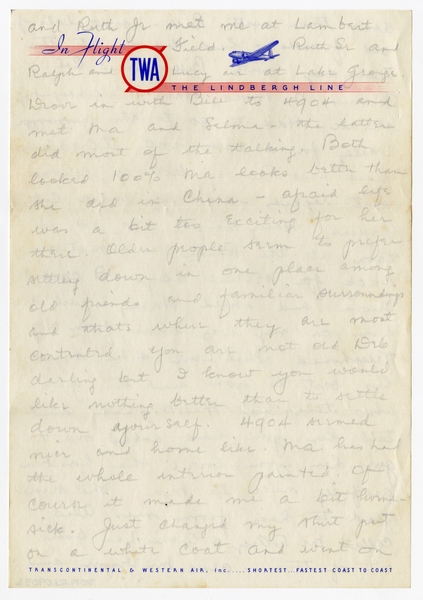 and Ruth Jr met me at Lambert
In Flight TWA Field. Ruth Sr and
Ralph and Lucy are at Lake
THE LINDBERGH LINE
Drove in with Bill to 4904 and
met Ma and Selma - the latter
did most of the talking. Both
looked 100% Ma looks better than
she did in China - afraid life
was a bit too exciting for her
there. Older people seem to prefer
settling down in one place among
old friends and familiar surroundings
and thats where they are most
contented. You are not old Deb
darling but I know you would
like nothing better than to settle
down yourself. 4904 seemed
nice and home like. Ma has had
the whole interior painted Of
course it made me a bit home-
sick. Just changed my shirt put
on a white coat and went on
TRANSCONTINENTAL & WESTERN AIR, Inc..... SHORTEST...FASTEST COAST TO COAST